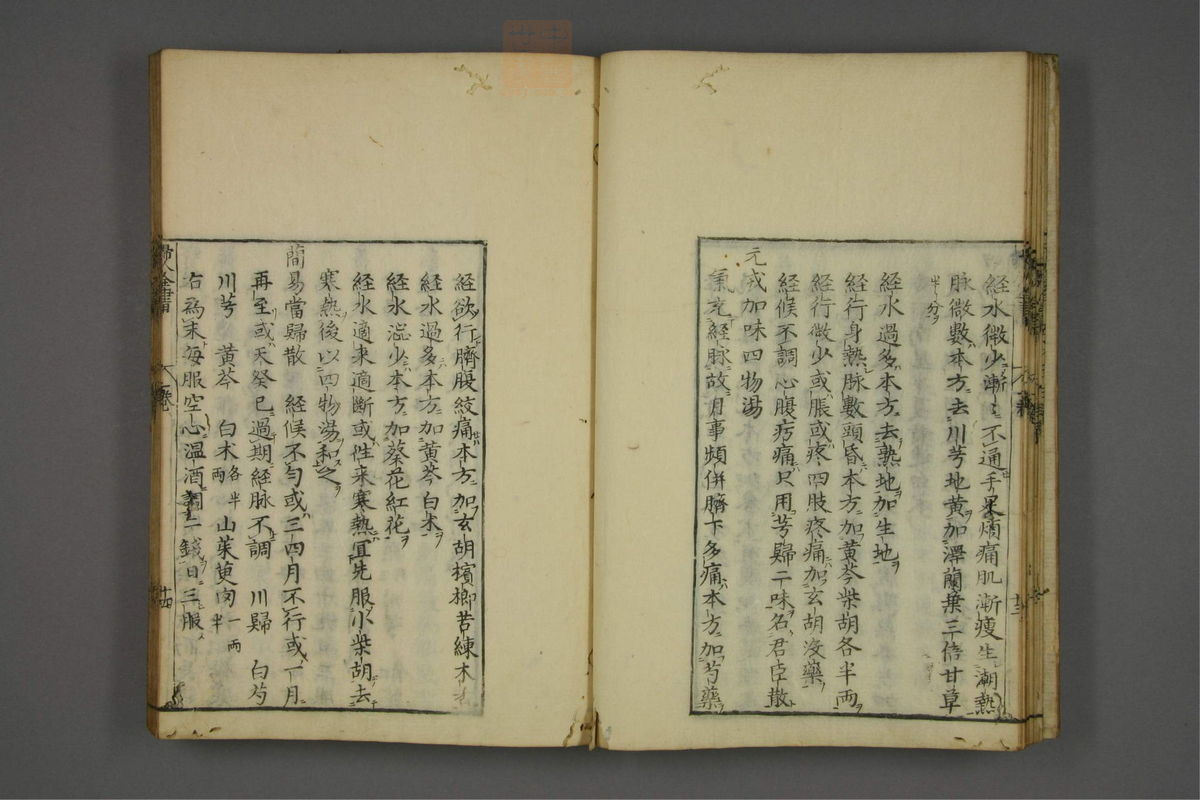 経水微少漸〻不通手累煩痛肌漸痩生潮熱
脉微數本方去川芎地黄加澤蘭葉三倍甘草
半分
経水過多本方去熟地加生地
経行身熱脉數頭昏本方加黄芩柴胡各半両
経行微少或脹或疼四肢疼痛加玄胡没藥
経候不調心腹㽲痛只用芎歸二味名君臣散
元戎加味四物湯
氣充経脉故月事頻併臍下多痛本方加芍藥
経欲行臍腹絞痛本方加玄胡檳榔苦練木
経水過多本方加黄芩白术
経水澁少本方加葵花紅花
経水適来適断或徃来寒熱宜先服小柴胡去
寒熱後以四物湯和之
簡易當歸散 経候不匀或三四月不行或一月
再至或天癸已過期経脉不調 川歸 白芍
川芎 黄芩 白术各半両 山茱萸肉一両半
右爲末毎服空心温酒調二錢日三服